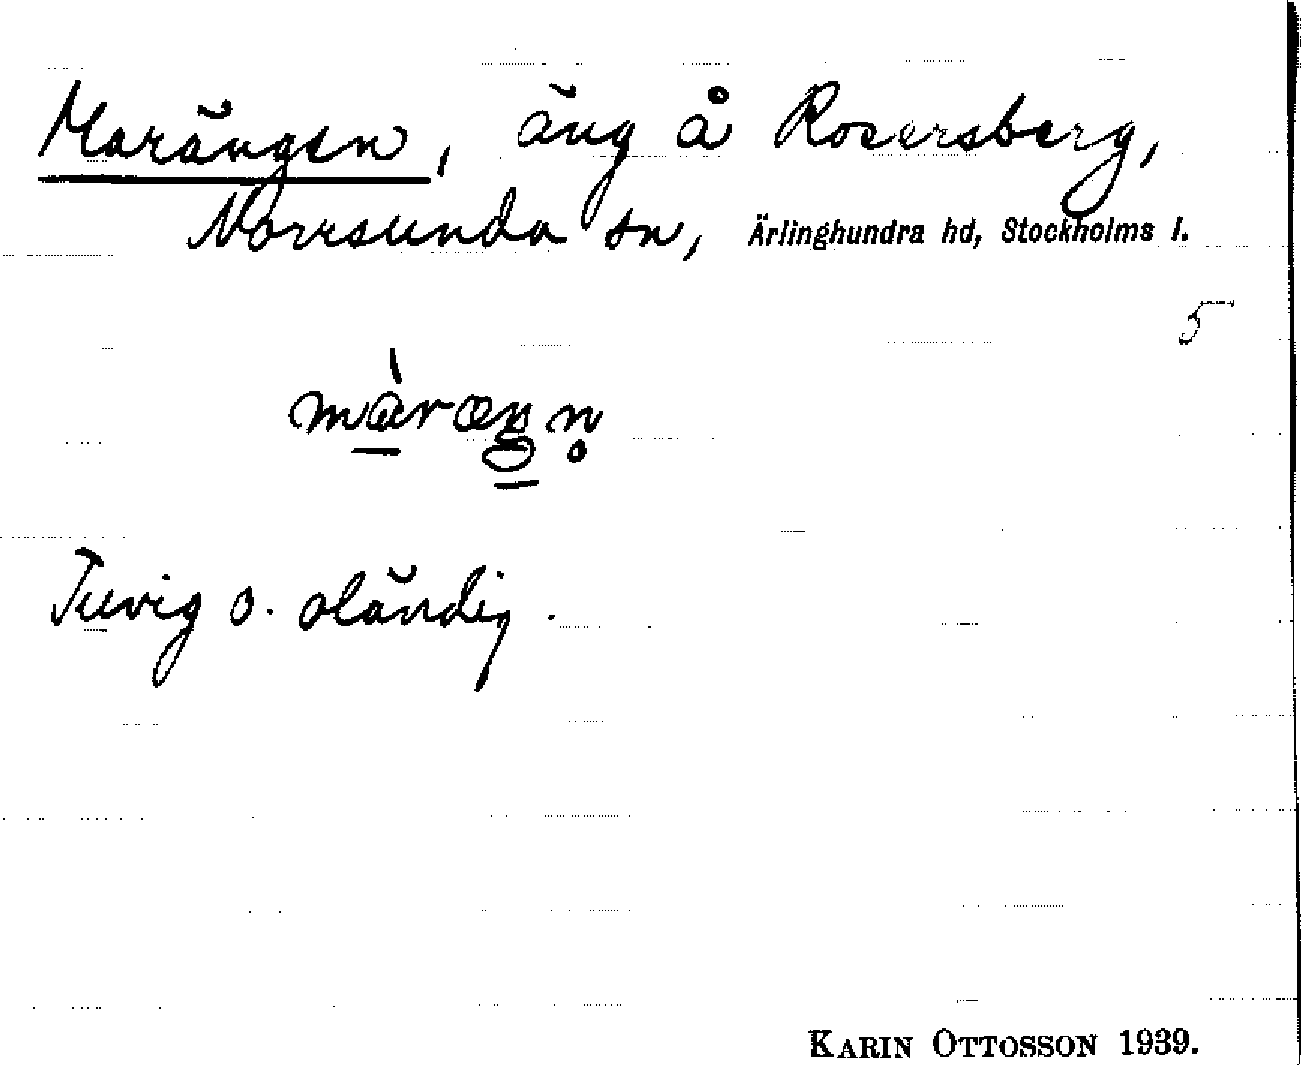 Marängen, äng å Rosersberg,
Norrsunda sn, Ärlinghundra hd, Stockholms l.
5
màræŋn̥
Tuvig o. oländig.
KARIN OTTOSSON 1939.